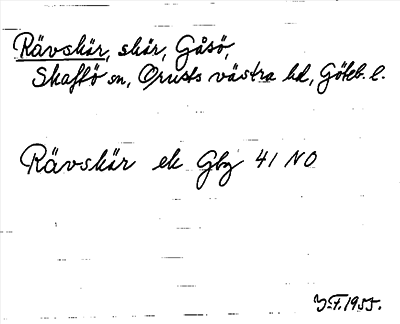 Rävskär, skär, Gåsö,
Skaftö sn, Orusts västra hd, Göteb. l.
Rävskär ek Gbg 41 NO
1955.